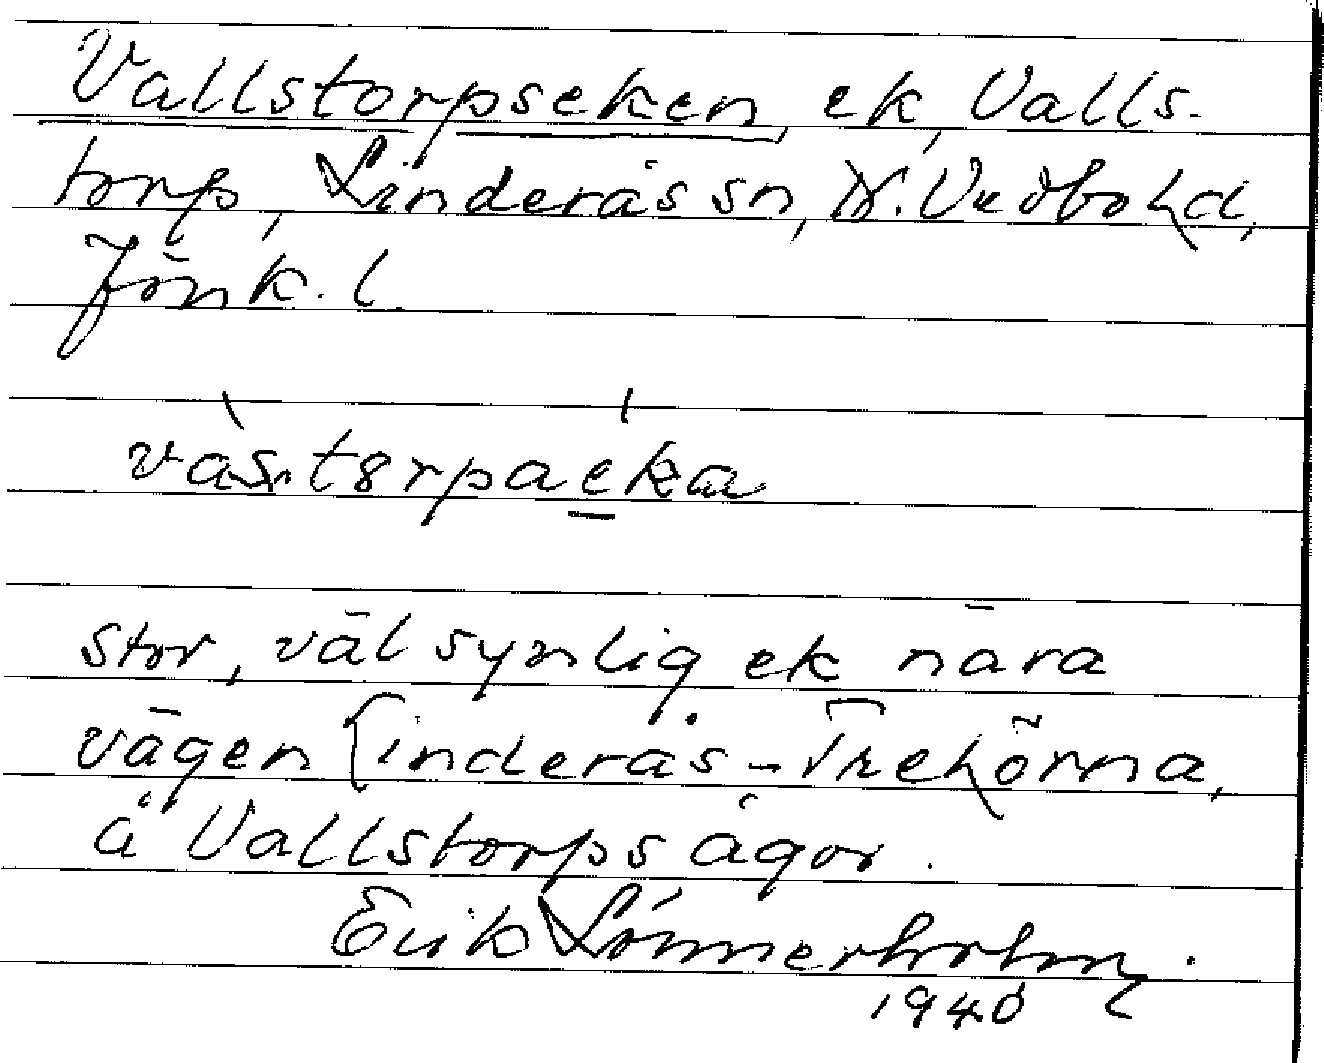 Vallstorpseken, ek, Valls-
torp, Linderås sn, N. Vedbo hd,
Jönk. l.
vàs.tørpaéka
stor, väl synlig ek nära
vägen Linderås–Trehörna,
å Vallstorps ägor.
Erik Lönnerholm.
1940